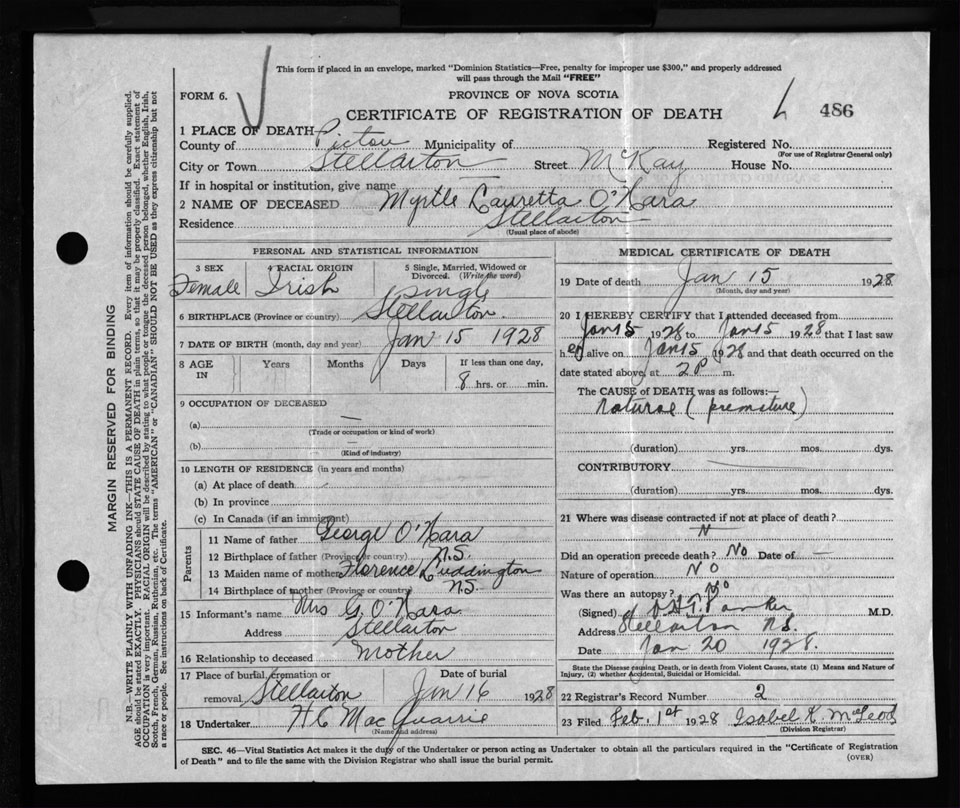 This form if placed in an envelope, marked "Dominion Statistics—Free, penalty for improper use $300," and properly addressed
will pass through the Mail "FREE"
FORM 6.
PROVINCE OF NOVA SCOTIA
CERTIFICATE OF REGISTRATION OF DEATH
486
1 PLACE OF DEATH
County of Pictou Municipality of Registered No.
(For use of Registrar General only)
City or Town Stellarton Street McKay House No.
If in hospital or institution, give name
2 NAME OF DECEASED Myrtle Lauretta O'Hara
Residence Stellarton
(Usual place of abode)
PERSONAL AND STATISTICAL INFORMATION
3 SEX 4 RACIAL ORIGIN 5 Single, Married, Widowed or
Divorced. (Write the word)
Female Irish Single
6 BIRTHPLACE (Province or country) Stellarton.
7 DATE OF BIRTH (month, day and year) Jan 15 1928
8 AGE Years Months Days If less than one day,
IN 8 hrs. or min.
9 OCCUPATION OF DECEASED
(a) —
(Trade or occupation or kind of work)
(b) —
(Kind of industry)
10 LENGTH OF RESIDENCE (in years and months)
(a) At place of death
(b) In province
(c) In Canada (if an immigrant)
Parents
11 Name of father George O'Hara
12 Birthplace of father (Province or country) N.S.
13 Maiden name of mother Florence Luddington
14 Birthplace of mother (Province or country) N.S.
15 Informant's name Mrs G. O'Hara
Address Stellarton
16 Relationship to deceased Mother
17 Place of burial, cremation or Date of burial
removal Stellarton Jan 16 1928
18 Undertaker H C MacQuarrie
(Name and address)
MEDICAL CERTIFICATE OF DEATH
19 Date of death Jan 15 1928
(Month, day and year)
20 I HEREBY CERTIFY that I attended deceased from
Jan 15 1928 to Jan 15 1928 that I last saw
her alive on Jan 15 1928 and that death occurred on the
date stated above, at 2 P m.
The CAUSE of DEATH was as follows:—
Natural (premature)
(duration) yrs. mos. dys.
CONTRIBUTORY
(duration) yrs. mos. dys.
21 Where was disease contracted if not at place of death?
N
Did an operation precede death? No Date of —
Nature of operation No
Was there an autopsy? No
(Signed) Parker M.D.
Address Stellarton N.S.
Date Jan 20 1928.
State the Disease causing Death, or in death from Violent Causes, state (1) Means and Nature of
Injury, (2) whether Accidental, Suicidal or Homicidal.
22 Registrar's Record Number 2
23 Filed Feb. 1st 1928 Isabel K McLeod
(Division Registrar)
SEC. 46—Vital Statistics Act makes it the duty of the Undertaker or person acting as Undertaker to obtain all the particulars required in the "Certificate of Registration
of Death" and to file the same with the Division Registrar who shall issue the burial permit.
(OVER)
MARGIN RESERVED FOR BINDING
N.B.—WRITE PLAINLY WITH UNFADING INK—THIS IS A PERMANENT RECORD. Every item of information should be carefully supplied.
AGE should be stated EXACTLY. PHYSICIANS should STATE CAUSE OF DEATH in plain terms, so that it may be properly classified. Exact statement of
OCCUPATION is very important. RACIAL ORIGIN will be described by stating to what people or tongue the deceased person belonged, whether English, Irish,
Scotch, French, German, Russian, Ruthenian, etc. The terms "AMERICAN" or "CANADIAN" SHOULD NOT BE USED as they express citizenship but not
a race or people. See instructions on back of Certificate.